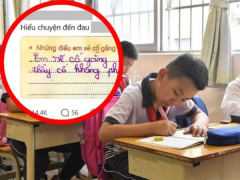 Hiểu chuyện đến đau
Những điều em sẽ cố gắng
Em sẽ cố gắng
thầy cô không ph
4.4K 56